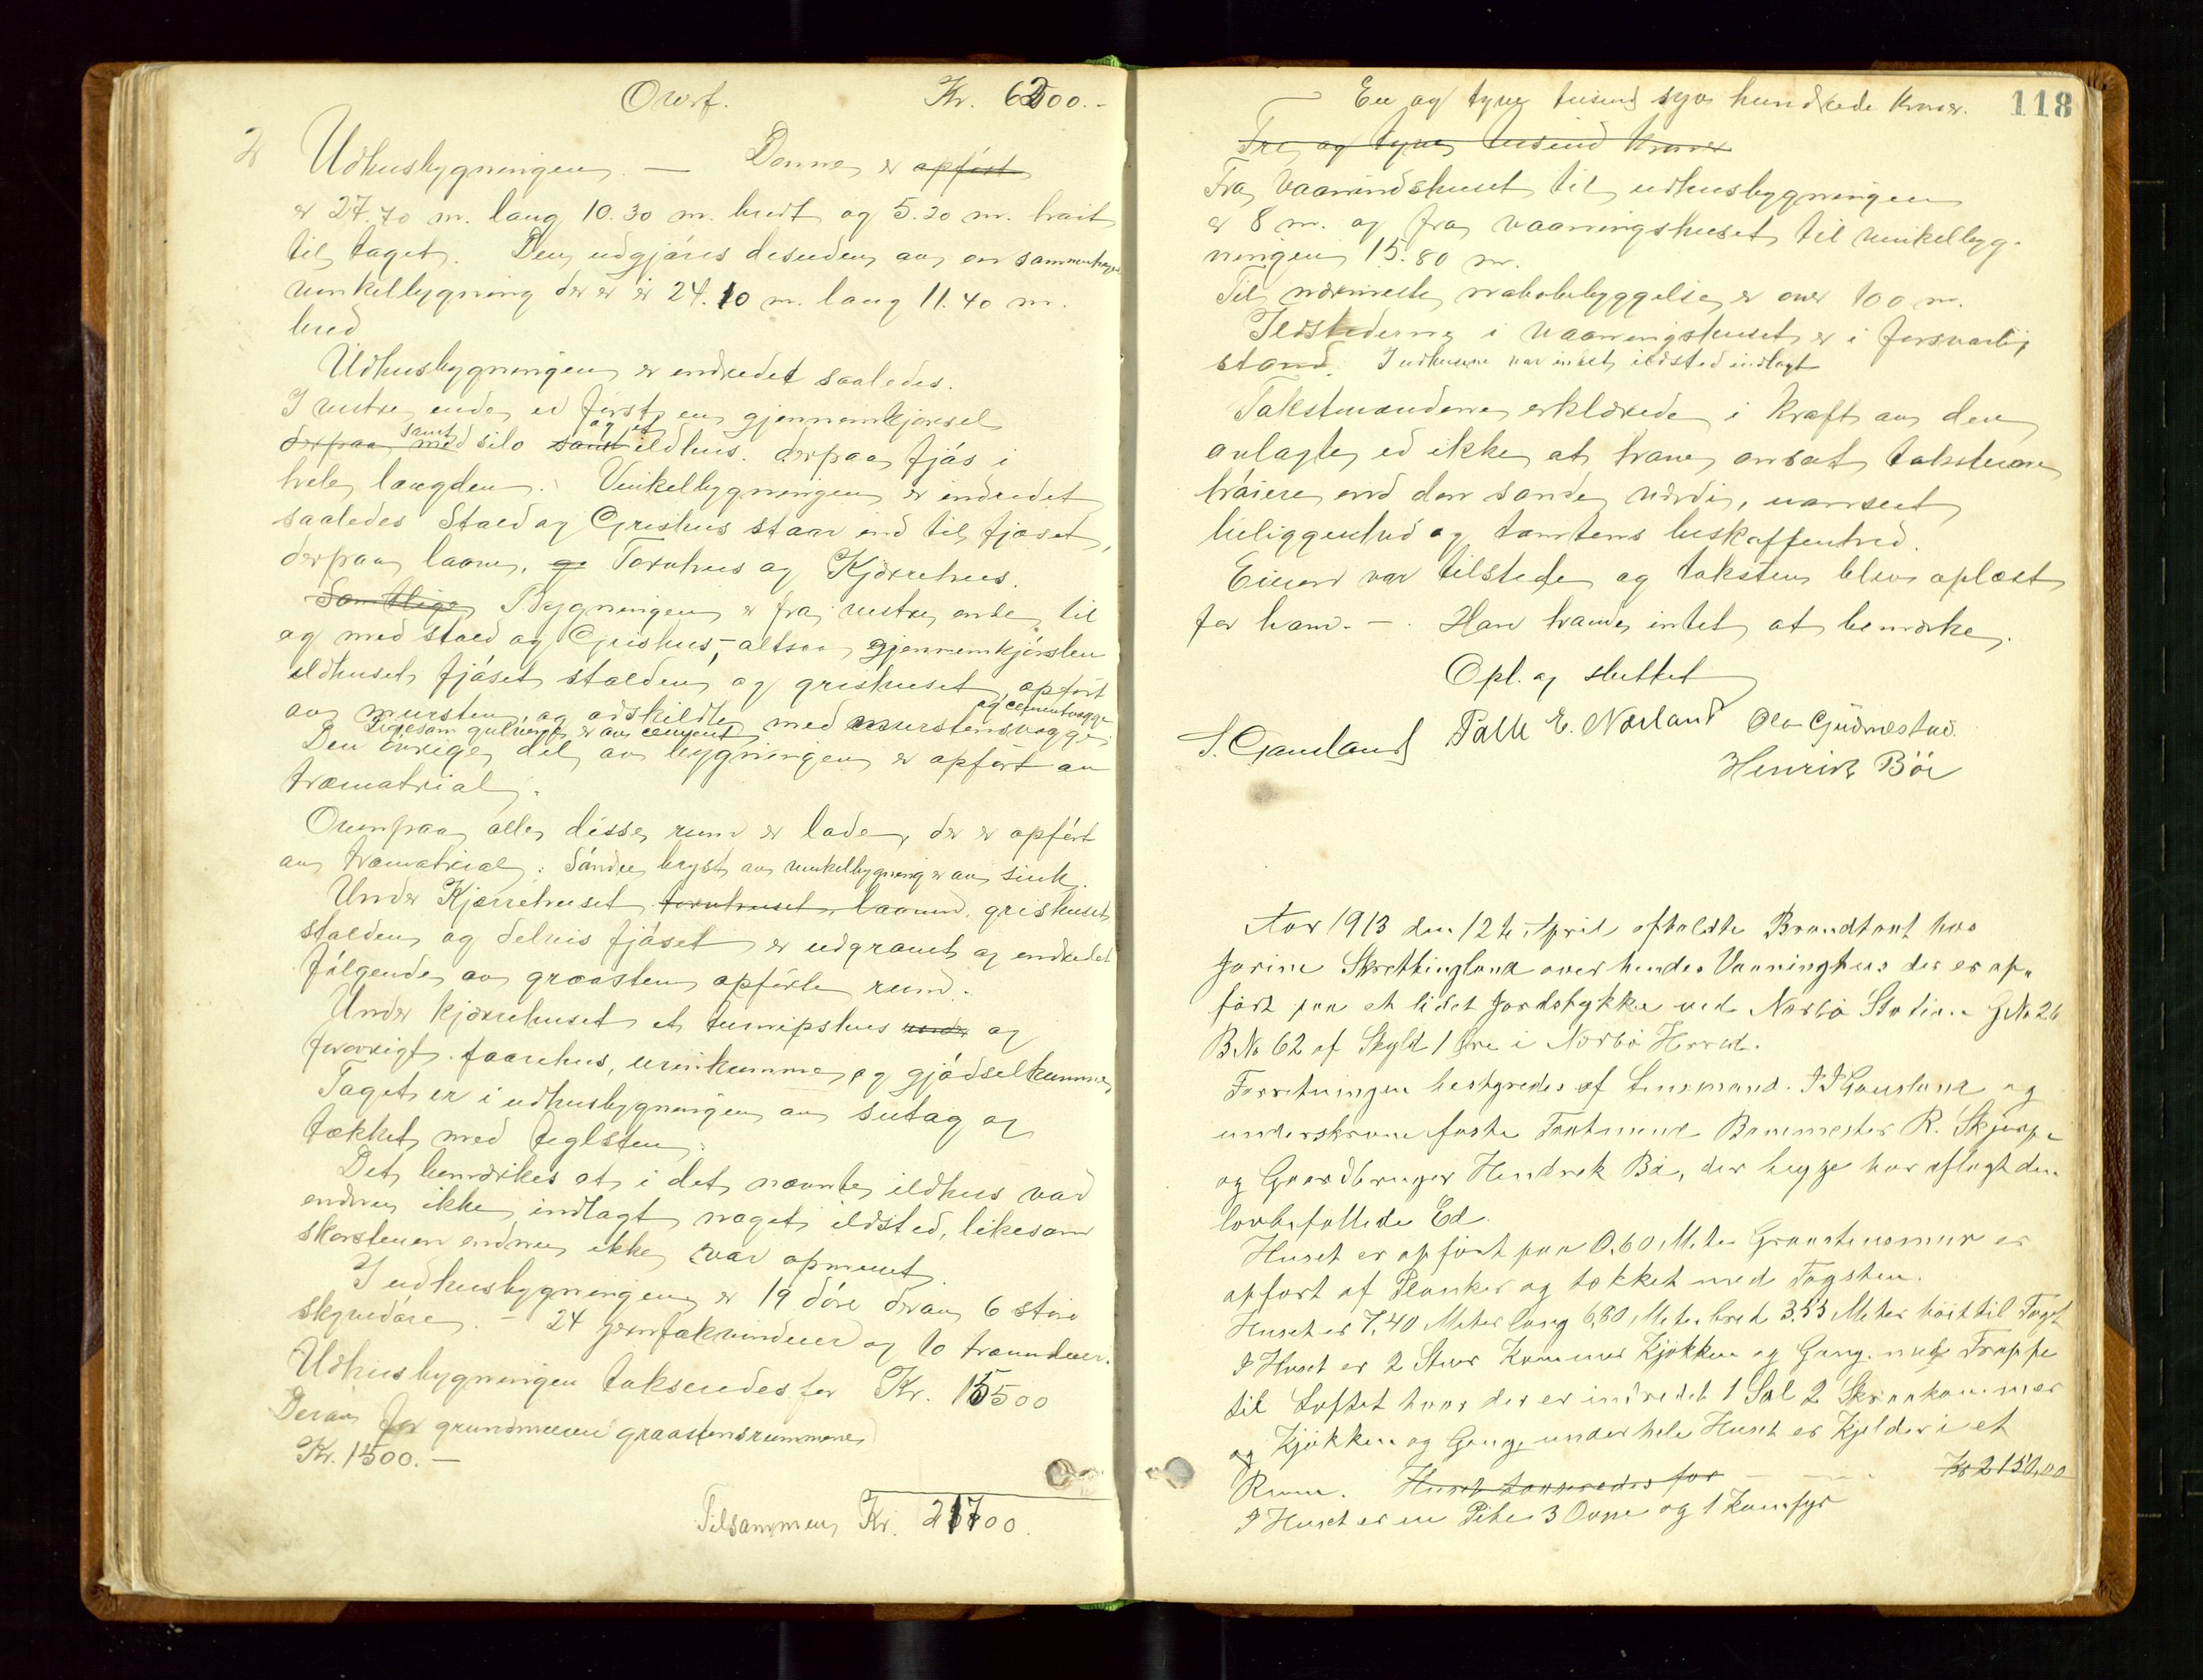 Overf. Kr. 6200.-
2 Udhusbygningen. — Denne er opført
er 27.70 m. lang 10.30 m. bredt og 5.20 m. høit
til taget. Den udgjøres desuden av en sammenhengende
vinkelbygning der er 24.10 m. lang 11.40 m.
bred
Udhusbygningen er indredet saaledes.
I vestre ende er først en gjennemkjørsel
derpaa samt med silo samt og et ildhus. derpaa fjøs i
hele længden. Vinkelbygningen er indredet
saaledes Stald og Grishus staar ind til fjøset,
derpaa laave, og Torvhus og Kjærrehus.
Samtlige Bygningen er fra vestre ende til
og med stald og Grishus, - altsaa gjennemkjørslen
ildhuset fjøset stalden og grishuset, opført
av mursten, og adskildte med murstensvægge og cementvægge
Ligesom gulvene er av cement
Den øvrige del av bygningen er opført av
træmatrial.
Ovenpaa alle disse rum er lade, der er opført
av træmatrial: Søndre bryst av vinkelbygning er av sink.
Under Kjærrehuset torvhuset, laaven, grishuset
stalden og delvis fjøset er udgravet og indredet
følgende av graasten opførte rum.
Under kjærrehuset et turnipshus under og
forøvrigt faarehus, urinkumme og gjødselkumme,
Taget er i udhusbygningen av sutag og
tækket med teglsten.
Det bemærkes at i det nævnte ildhus var
endnu ikke indlagt noget ildsted, likesom
skorstenen endnu ikke var opmuret.
I udhusbygningen er 19 døre derav 6 store
skyvedøre. - 24 jernfakvinduer og 10 trævinduer.
Udhusbygningen takseredes for Kr. 15500
Derav for grundmuren graastensrummene
Kr. 1500.—
Tilsammen Kr. 21700.
118
En og tyve tusind syv hundrede kroner.
Tre og tyve tusind kroner
Fra Vaanindshuset til udhusbygningen
er 8 m. og fra vaaningshuset til vinkelbyg-
ningen 15.80 m.
Til nærmeste nabobebyggelse er over 100 m.
Ildstederne i vaaningshuset er i forsvarlig
stand. I udhusene var intet ildsted indlagt
Takstmændene erklærede i kraft av den
avlagte ed ikke at have ansat taksterne
høiere end den sande værdi, uanseet
beliggenhed og tomtens beskaffenhed.
Eieren var tilstede og taksten blev oplæst
for ham. — . Han havde intet at bemærke.
Opl. og sluttet
S. Gausland Palle E. Nærland Ola Gudmestad.
Henrik Bøe
Aar 1913 den 12te April afholdtes Brandtaxt hos
Jorine Skrettingland over hendes Vaaninghus der er op-
ført paa et lidet Jordstykke ved Nærbø Station GNo 26
BNo 62 af Skyld 1 Øre i Nærbø Herred.
Forretningen bestyredes af Lensmand. S Gausland og
underskrevne faste Taxtmænd Bommester R. Skjerpe
og Gaardbruger Hendrek Bø, der begge har aflagt den
lovbefallede Ed.
Huset er opført paa 0,60 Meter Graastensmur er
opført af Planker og tækket med Tagsten.
Huset er 7,40 Meter lang 6,80 Meter bred 3,55 Meter høit til Taget
I Huset er 2 Stuer Kammer Kjøkken og Gang. med Trappe
til Loftet hvor der er indredet 1 Sal 2 Skraakammer
og Kjøkken og Gang, under hele Huset er Kjelder i et
Rum. Huset taxeredes for Kr 2150,00
I Huset er en Pibe 3 Ovne og 1 Komfyr